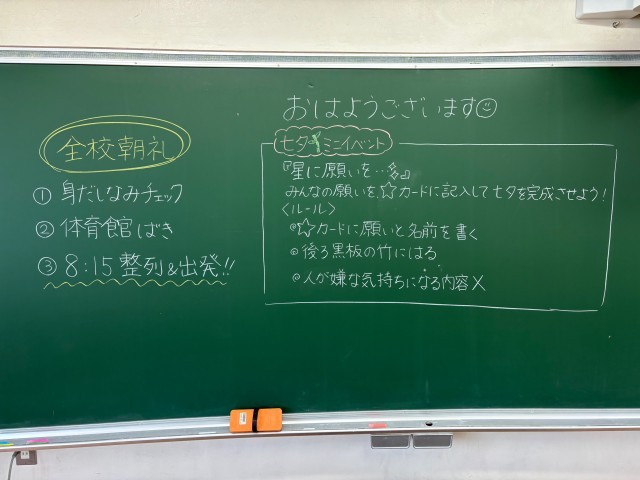 全校朝礼
① 身だしなみチェック
② 体育館ばき
③ 8:15 整列&出発!!
おはようございます☺
七夕ミニイベント
『星に願いを…☆彡』
みんなの願いを、☆カードに記入して七夕を完成させよう!
〈ルール〉
◎☆カードに願いと名前を書く
◎後ろ黒板の竹にはる
◎人が嫌な気持ちになる内容×